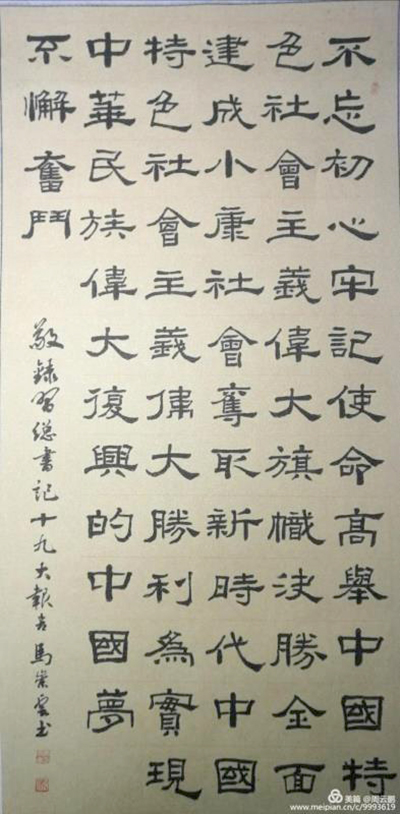 不忘初心牢記使命高舉中國特
色社會主義偉大旗幟決勝全面
建成小康社會奪取新時代中國
特色社會主義偉大勝利為實現
中華民族偉大復興的中國夢
不懈奮鬥
敬錄習總書記十九大報告馬崇雲书
美篇 @周云鹏
www.meipian.cn/c/9993619